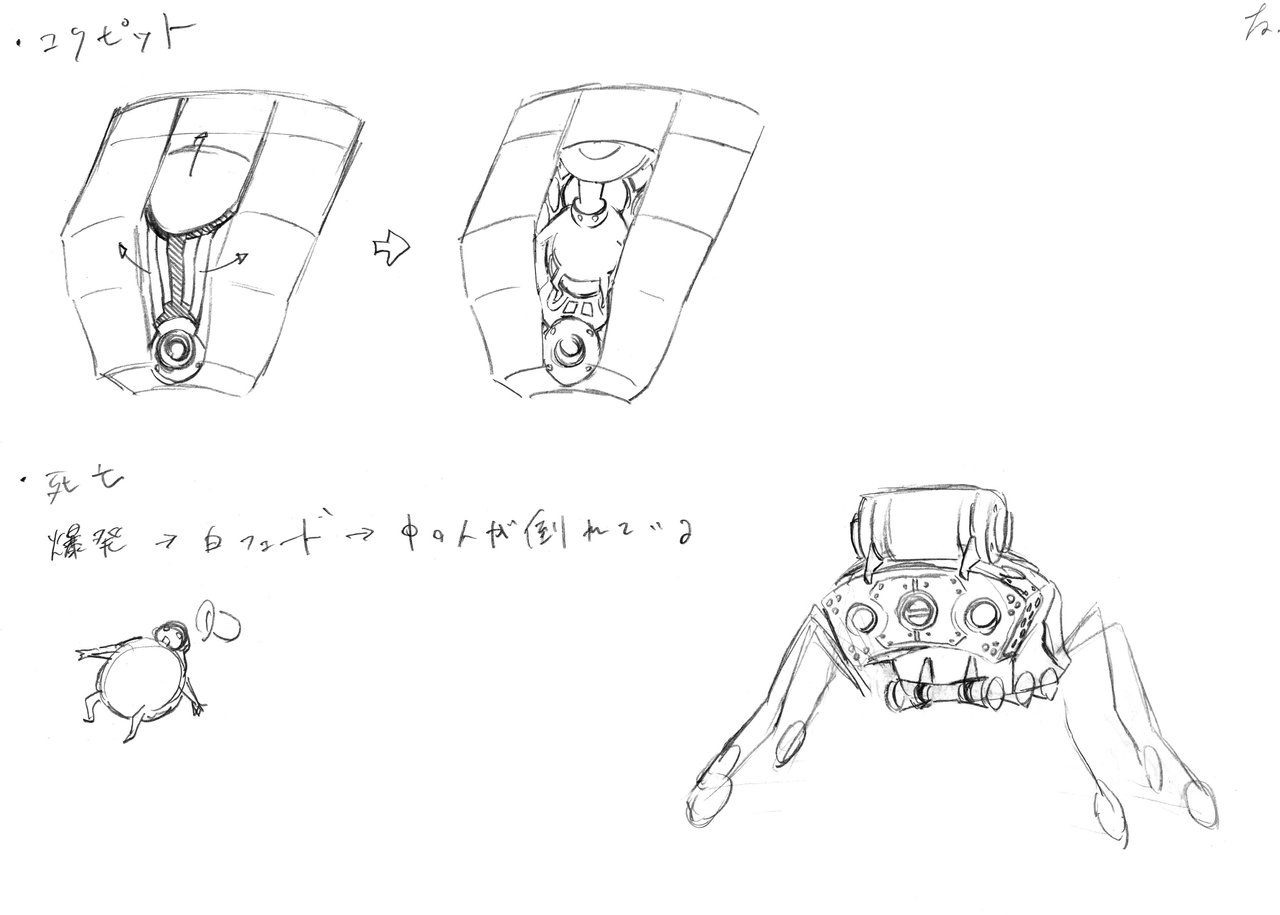 ・コクピット
・死亡
爆発→白フェード→中の人が倒れている